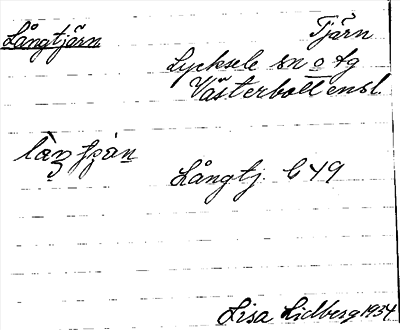 Långtjärn
Tjärn
Lycksele sn o tg
Västerbottensl.
Långtj. C 49
Lisa Lidberg 1934